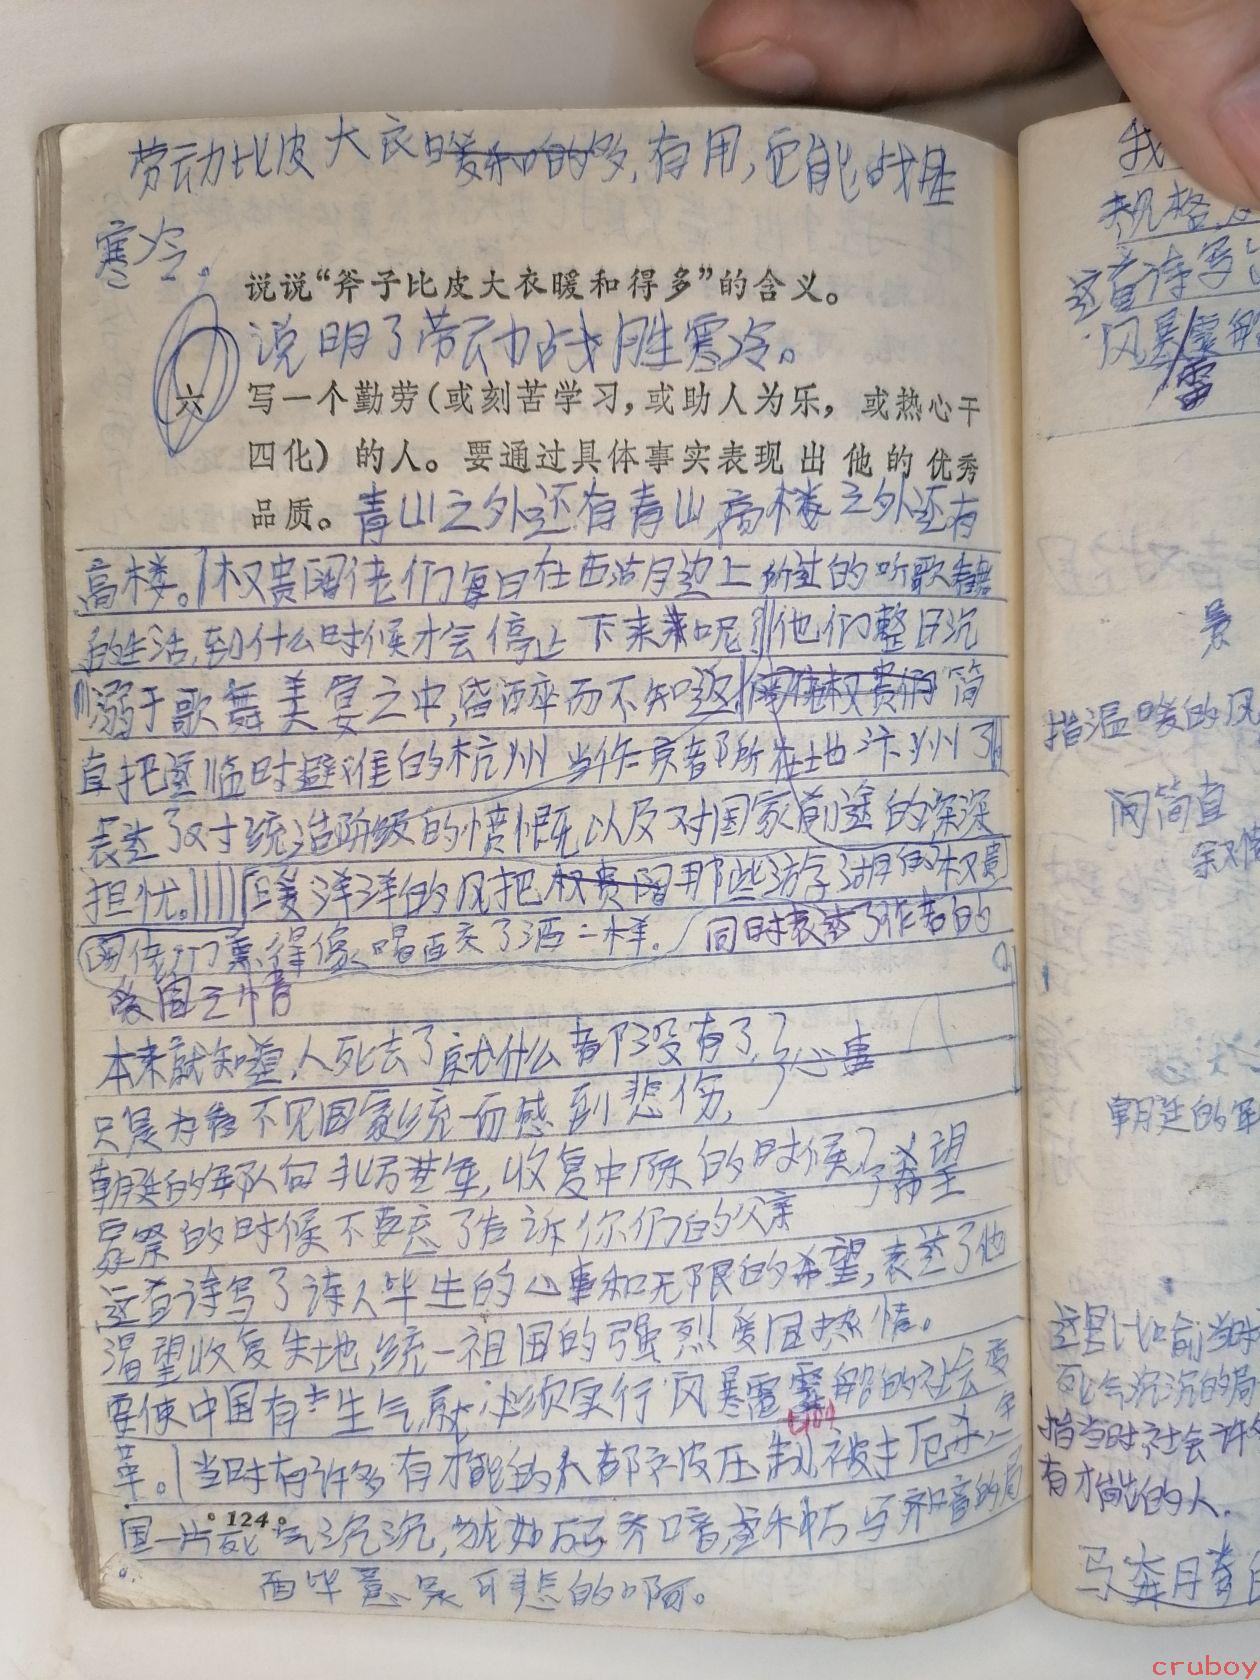 劳动比皮大衣暖和的多,有用,它能战胜
寒冷。
说说“斧子比皮大衣暖和得多”的含义。
说明了劳动战胜寒冷。
六 写一个勤劳(或刻苦学习,或助人为乐,或热心干
四化)的人。要通过具体事实表现出他的优秀
品质。青山之外还有青山,高楼之外还有
高楼。权贵阔佬们每日在西湖边上所过的听歌
的生活,到什么时候才会停止下来呢?他们整日沉
溺于歌舞美宴之中,昏醉而不知返,阔佬权贵们简
直把这临时避难的杭州当作京都所在地汴州了
表达了对统治阶级的愤慨以及对国家前途的深深
担忧。暖洋洋的风把权贵阔那些游湖的权贵
阔佬们熏得像喝醉了酒一样。同时表达了作者的
爱国之情
本来就知道,人死去了就什么都没有了,心事
只是为看不见国家统一而感到悲伤,
朝廷的军队向北方进军,收复中原的时候,希望
家祭的时候不要忘了告诉你们的父亲
这首诗写了诗人毕生的心事和无限的希望,表达了他
渴望收复失地,统一祖国的强烈爱国热情。
要使中国有生气,就必须实行风暴雷霆般的社会变
革。当时有许多有才能的人都被压制被扼杀,全
国一片死气沉沉,
124
的局
面毕竟是可悲的啊。
我
规格,
这首诗写
风暴雷
景
指温暖的风
简直
朝廷的军
这里比喻当时
死气沉沉的局
指当时社会许
有才能的人.
cruboy